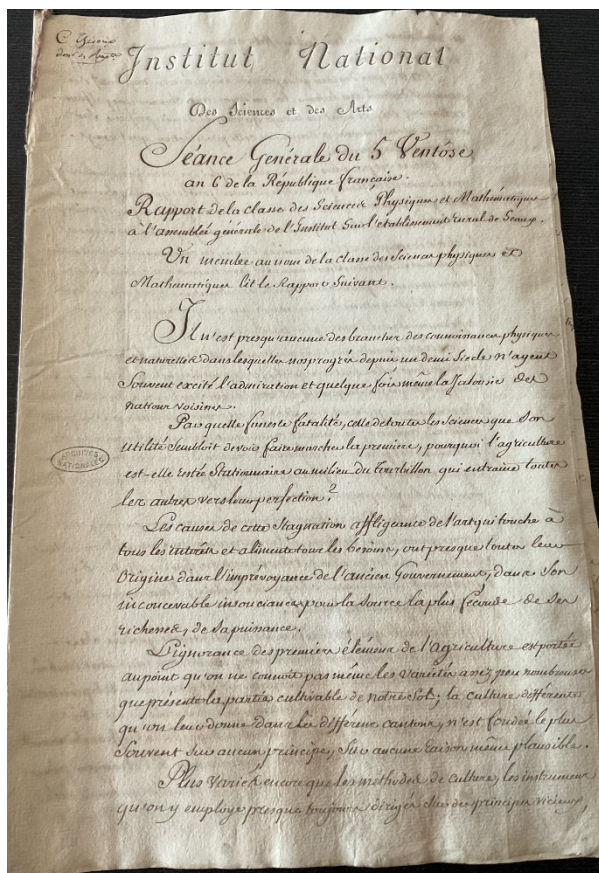 Institut National
Des Sciences et des Arts
Séance Générale du 5 Ventôse
an 6 de la République française.
Rapport de la classe des Sciences Physiques et Mathématiques
à l'assemblée générale de l'Institut sur l'établissement rural de Sceaux.
Un membre au nom de la classe des Sciences physiques et
Mathématiques lit le Rapport Suivant.
Il n'est presqu'aucune des branches des connoissances physiques
et naturelles dans lesquelles nos progrès depuis un demi Siècle n'ayent
Souvent excité l'admiration et quelque fois même la Jalousie des
nations voisines.
Par quelle funeste fatalité, celle de toutes les Sciences que Son
utilité Sembloit devoir faire marcher la première, pourquoi l'agriculture
est-elle restée Stationnaire au milieu du tourbillon qui entraine toutes
les autres vers leur perfection?
ARCHIVES
NATIONALES
Les causes de cette Stagnation affligeante de l'art qui touche à
tous les intérêts et alimente tous les besoins, ont presque toutes leur
Origine dans l'imprévoyance de l'ancien Gouvernement, dans Son
inconcevable insouciance pour la source la plus féconde de Ses
richesses, de Sa puissance.
L'ignorance des premiers élémens de l'agriculture est portée
au point qu'on ne connoit pas même les variétés assez peu nombreuses
que présente la partie cultivable de notre Sol; la culture différente
qu'on leur donne dans les différens cantons, n'est fondée le plus
Souvent Sur aucun principe, Sur aucune raison même plausible.
Plus variés encore que les méthodes de culture, les instrumens
qu'on y employe presque toujours dirigés Sur des principes vicieux,